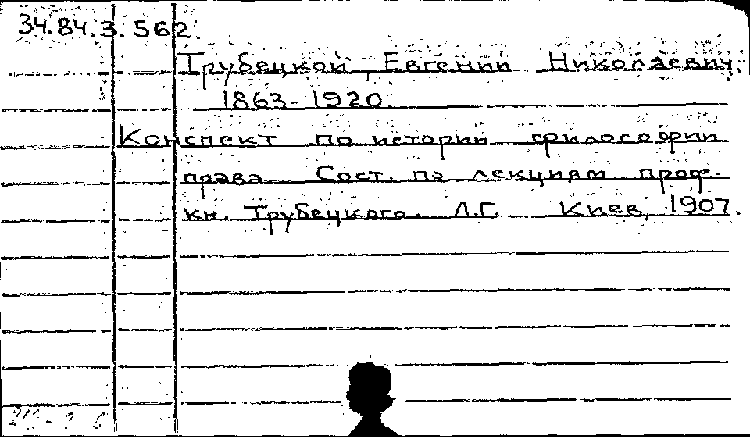 34.84.3.562
Трубецкой, Евгений Николаевич.
1863-1920
Конспект по истории философии
права Сост. по лекциям проф.
кн. Трубецкого. Л.Г. Киев, 1907.